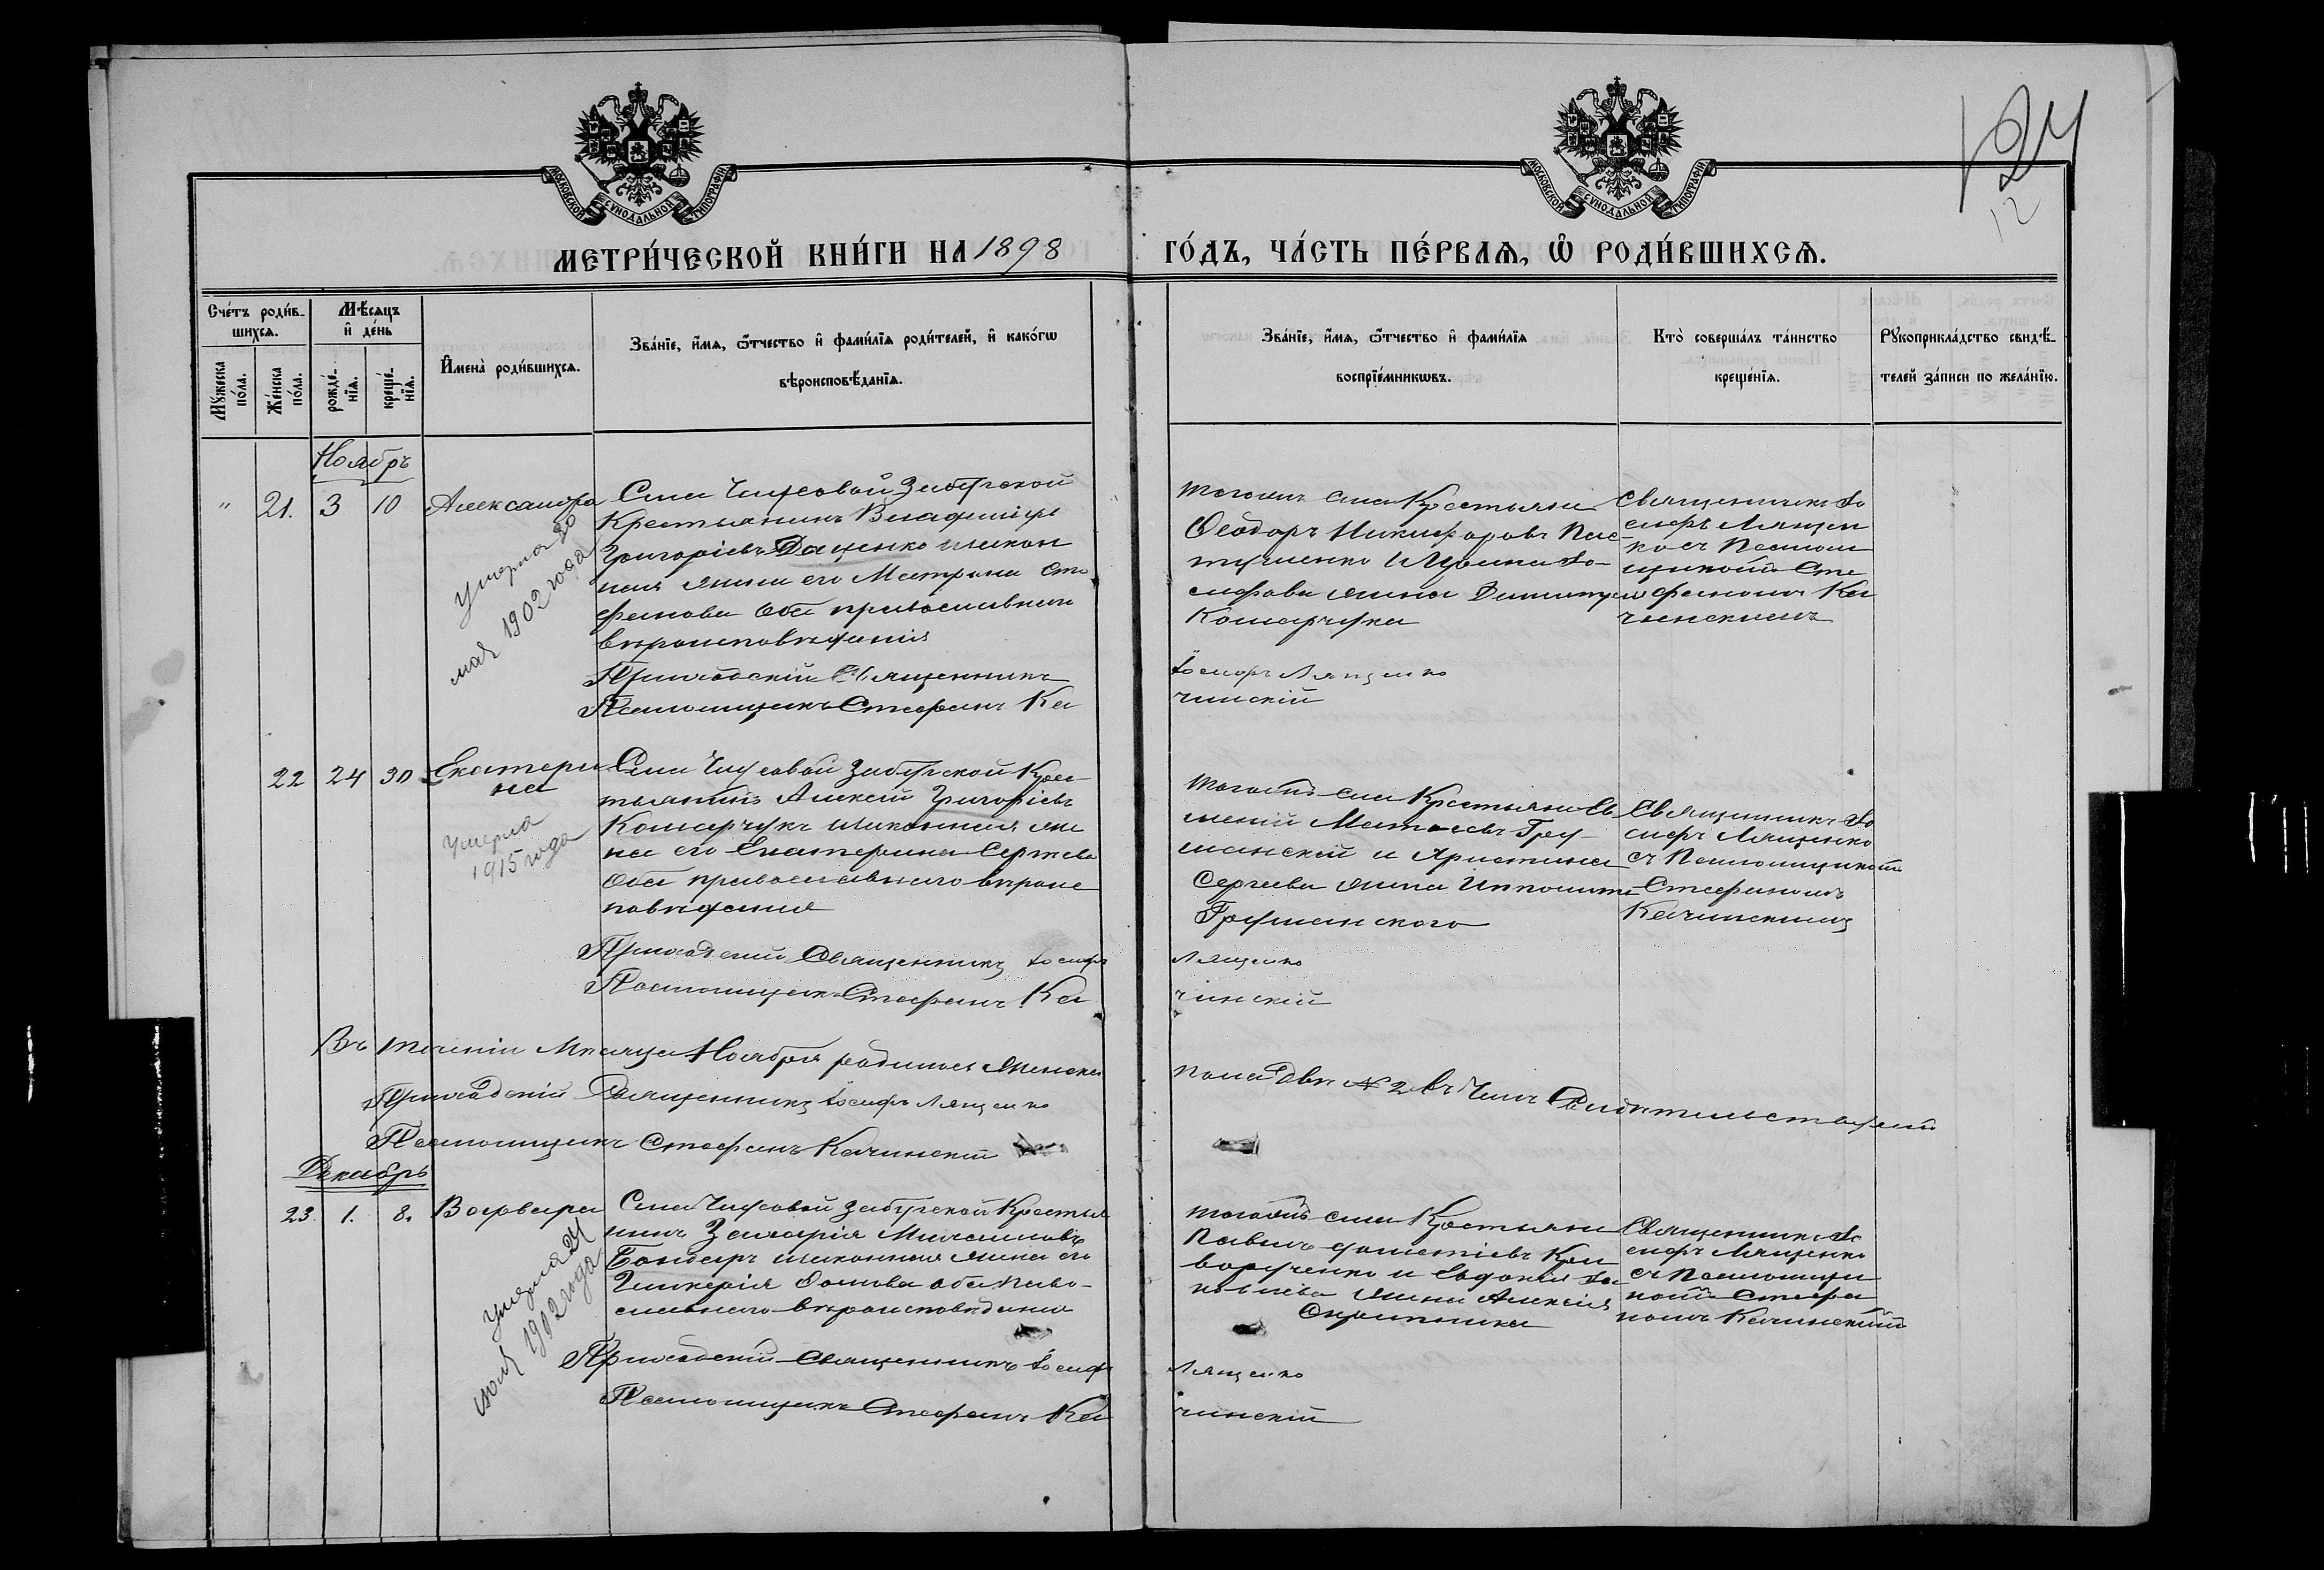 124
12
МОСКОВСКОЙ СУНОДАЛЬНОЙ ТИПОГРАФІИ
МОСКОВСКОЙ СУНОДАЛЬНОЙ ТИПОГРАФІИ
МЕТРИ́ЧЕСКОЙ КНИ́ГИ НА 1898 ГО́ДЪ, ЧА́СТЬ ПЕ́РВАѦ, Ѡ҆ РОДИ́ВШИХСѦ.
Сче́тъ роди́в-
шихсѧ.
Мꙋжеска по́ла.
Же́нска по́ла.
Мѣ́сѧцъ
и҆ де́нь
рожде́-
нїѧ.
креще́-
нїѧ.
И҆мена̀ роди́вшихсѧ.
Зва́нїе, и҆́мѧ, ѻ҆́тчество и҆ фами́лїѧ роди́телей, и҆ како́гѡ
вѣроисповѣ́данїѧ.
Зва́нїе, и҆́мѧ, ѻ҆́тчество и҆ фами́лїѧ
воспрїе́мникѡвъ.
Кто̀ соверша́лъ та́инство
креще́нїѧ.
Рꙋкоприкла́дство свидѣ́-
телей за́писи по жела́нїю.
Ноябрь
" 21. 3 10 Александра
Умерла 30
мая 1902 года
Села Забугской
Крестьянинъ Владиміръ
Григоріевъ Даценко и закон
ная жена его Матрона Сте
фанова Оба православнаго
вѣроисповѣданія
Приходскій Священникъ
Псаломщикъ Стефанъ Ка
села Крестьяни
Ѳеодоръ Никифоровъ
Іо-
сифова жена Димитрія
Комарчука
Іосифъ Лященко
чинскій
Священникъ Іо
сифъ Лящен
ко съ Псалом
щикомъ Сте
фаномъ Ка
чинскимъ
22 24 30 Екатери
на
Умерла
1915 года
Села Забугской Крес
тьянинъ Алексій Григоріевъ
Комарчукъ и законная же
на его Екатерина Сергіева
Оба православнаго вѣроис
повѣданія
Приходскій Священникъ Іосифъ
Псаломщикъ Стефанъ Ка
села Крестьяни Ев
меній Матвѣевъ Гру-
шанскій и Христина
Сергіева жена Ипполита
Грушанского
Лященко
чинскій
Священникъ Іо
сифъ Лященко
съ Псаломщикомъ
Стефаномъ
Качинскимъ
Въ теченіи Мѣсяца Ноября родилось женска пола двѣ № 2 въ чемъ Свидѣтельствуемъ
Приходскій Священникъ Іосифъ Лященко
Псаломщикъ Стефанъ Качинскій
Декабрь
23 1. 8. Варвара
Умерла 24
1902 года
Села Забугской Крестья
нинъ Захарія
Бондарь и законная жена его
Гликерія Фомова оба право-
славнаго вѣроисповѣданія
Приходскій Священникъ Іосифъ
Псаломщикъ Стефанъ Ка
села Крестьяни
Павелъ
и Евдокія
жена Алексія
Лященко
чинскій
Священникъ Іо
сифъ Лященко
съ Псаломщи
комъ Стефа
номъ Качинскимъ